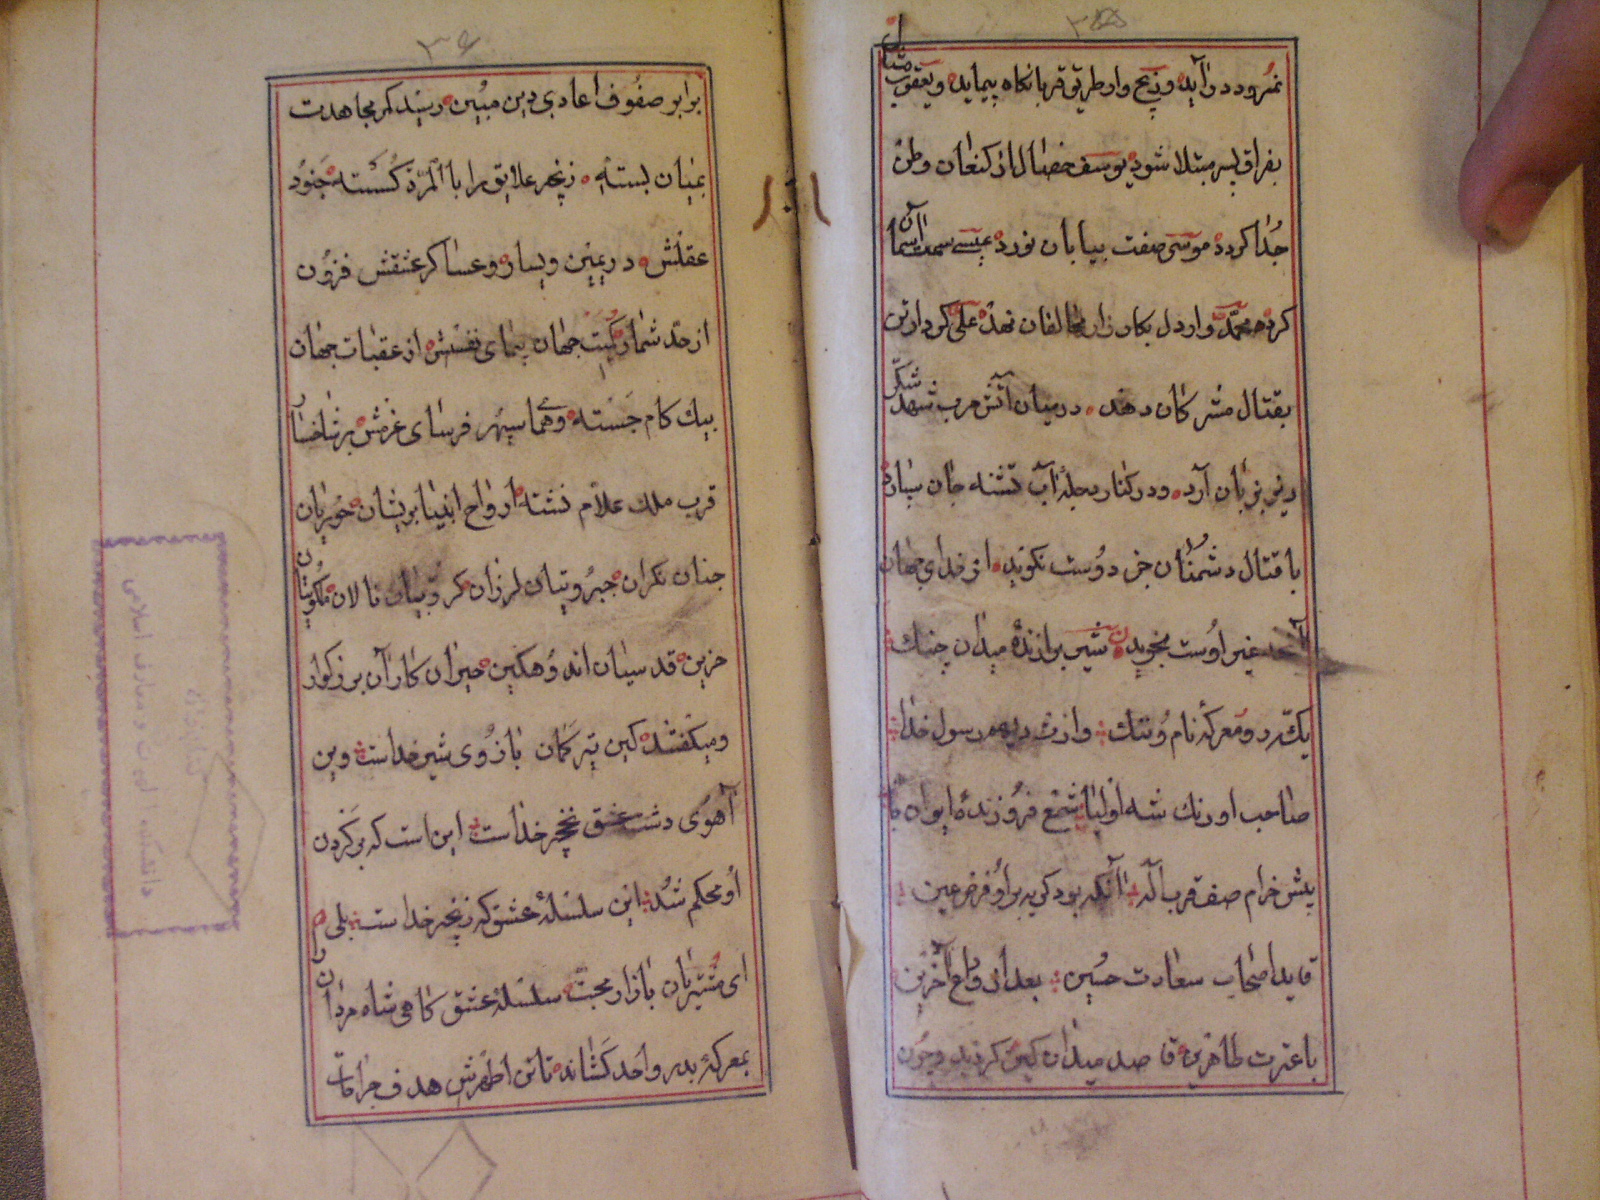 ۳۵
نمرود در آید و ذبیح وار طریق قربانگاه پیماید و یعقوب مثال
بفراق پسر مبتلا شود یوسف خصال از کنعان وطن
جدا کرده موسی صفت بیابان نورد عیسی سمت آسمان
کرد محمد وار دل بکارزار مخالفان نهد علی کردار تن
بقتال مشرکان دهد در میان آتش حرب شهد شکر
بر زبان آرد و در کنار دجله آب تشنه جان سپارد
با قتال دشمنان جز دوست نکوید از خدای جهان
غیر اوست نجوید شیر برازندۀ میدان جنک
یکه رد و معرکه نام و ننک وارث دیهیم رسول خدا
صاحب اورنک شه اولیا شمع فروزندۀ ایوان
پیش خرام صف قرب اله آنکه بود کریه بر او فرض عین
قاید اصحاب سعادت حسین بعد از وداع آخرین
با عترت طاهرین قاصد میدان کین کردید و چون
۳۶
برابر صفوف اعادی دین مبین رسید کمر مجاهدت
بمیان بسته زنجیر علایق را بالمره کسسته جنود
عقلش در یمین و یسار و عساکر عشقش فزون
از حد شمار کمیت جهان پیمای نفسش از عقبات جهان
بیک کام جسته و همای سپهر فرسای عزمش بر شاخسار
قرب ملک علام نشسته ارواح انبیا پریشان حوریان
جنان نکران جبروتیان لرزان کروبیان نالان ملکوتیان
حزین قدسیان اندوهکین حیران کار آن بزرکوار
و میکفتند کین تیر کمان بازوی شیر خداست وین
آهوی دشت عشق نخچیر خداست این است که بر کردن
او محکم شد این سلسلۀ عشق که زنجیر خداست بلی
ای مشتریان بازار محبت سلسلۀ عشق کاهی شاه مردان
بمعرکۀ بدر و احد کشاند تا تن اطهرش هدف جراحات
دانشکده الهیات و معارف اسلامی
کتابخانه